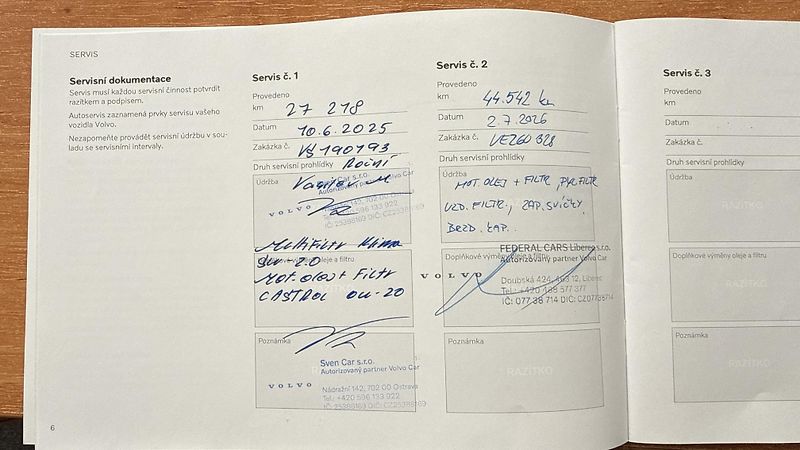 SERVIS
Servisní dokumentace
Servis musí každou servisní činnost potvrdit
razítkem a podpisem.
Autoservis zaznamená prvky servisu vašeho
vozidla Volvo.
Nezapomeňte provádět servisní údržbu v sou-
ladu se servisními intervaly.
6
Servis č. 1
Provedeno
km 27 218
Datum 10.6.2025
Zakázka č.
Druh servisní prohlídky Roční
Údržba
Sven Car s.r.o.
Autorizovaný partner Volvo Car
VOLVO
Multifiltr Klima
Doplňkové výměny oleje a filtru
Mot. olej + Filtr
CASTROL 0W-20
Poznámka
RAZÍTKO
Sven Car s.r.o.
Autorizovaný partner Volvo Car
VOLVO
Nádražní 142, 702 00 Ostrava
Tel.: +420 596 133 922
IČ: 25388169 DIČ: CZ25388169
Servis č. 2
Provedeno
km 44.542 km
Datum 2.7.2026
Zakázka č. VE260328
Druh servisní prohlídky
Údržba
MOT. OLEJ + FILTR, PYL. FILTR
VZD. FILTR, ZAP. SVÍČKY,
BRZD. KAP.
FEDERAL CARS Liberec s.r.o.
Autorizovaný partner Volvo Car
VOLVO
Doubská 424, 463 12, Liberec
Tel.: +420 488 577 377
IČ: 077 38 714 DIČ: CZ07738714
Doplňkové výměny oleje a filtru
Poznámka
RAZÍTKO
Servis č. 3
Provedeno
km
Datum
Zakázka č.
Druh servisní prohlídky
Údržba
RAZÍTKO
Doplňkové výměny oleje a filtru
RAZÍTKO
Poznámka
RAZÍTKO